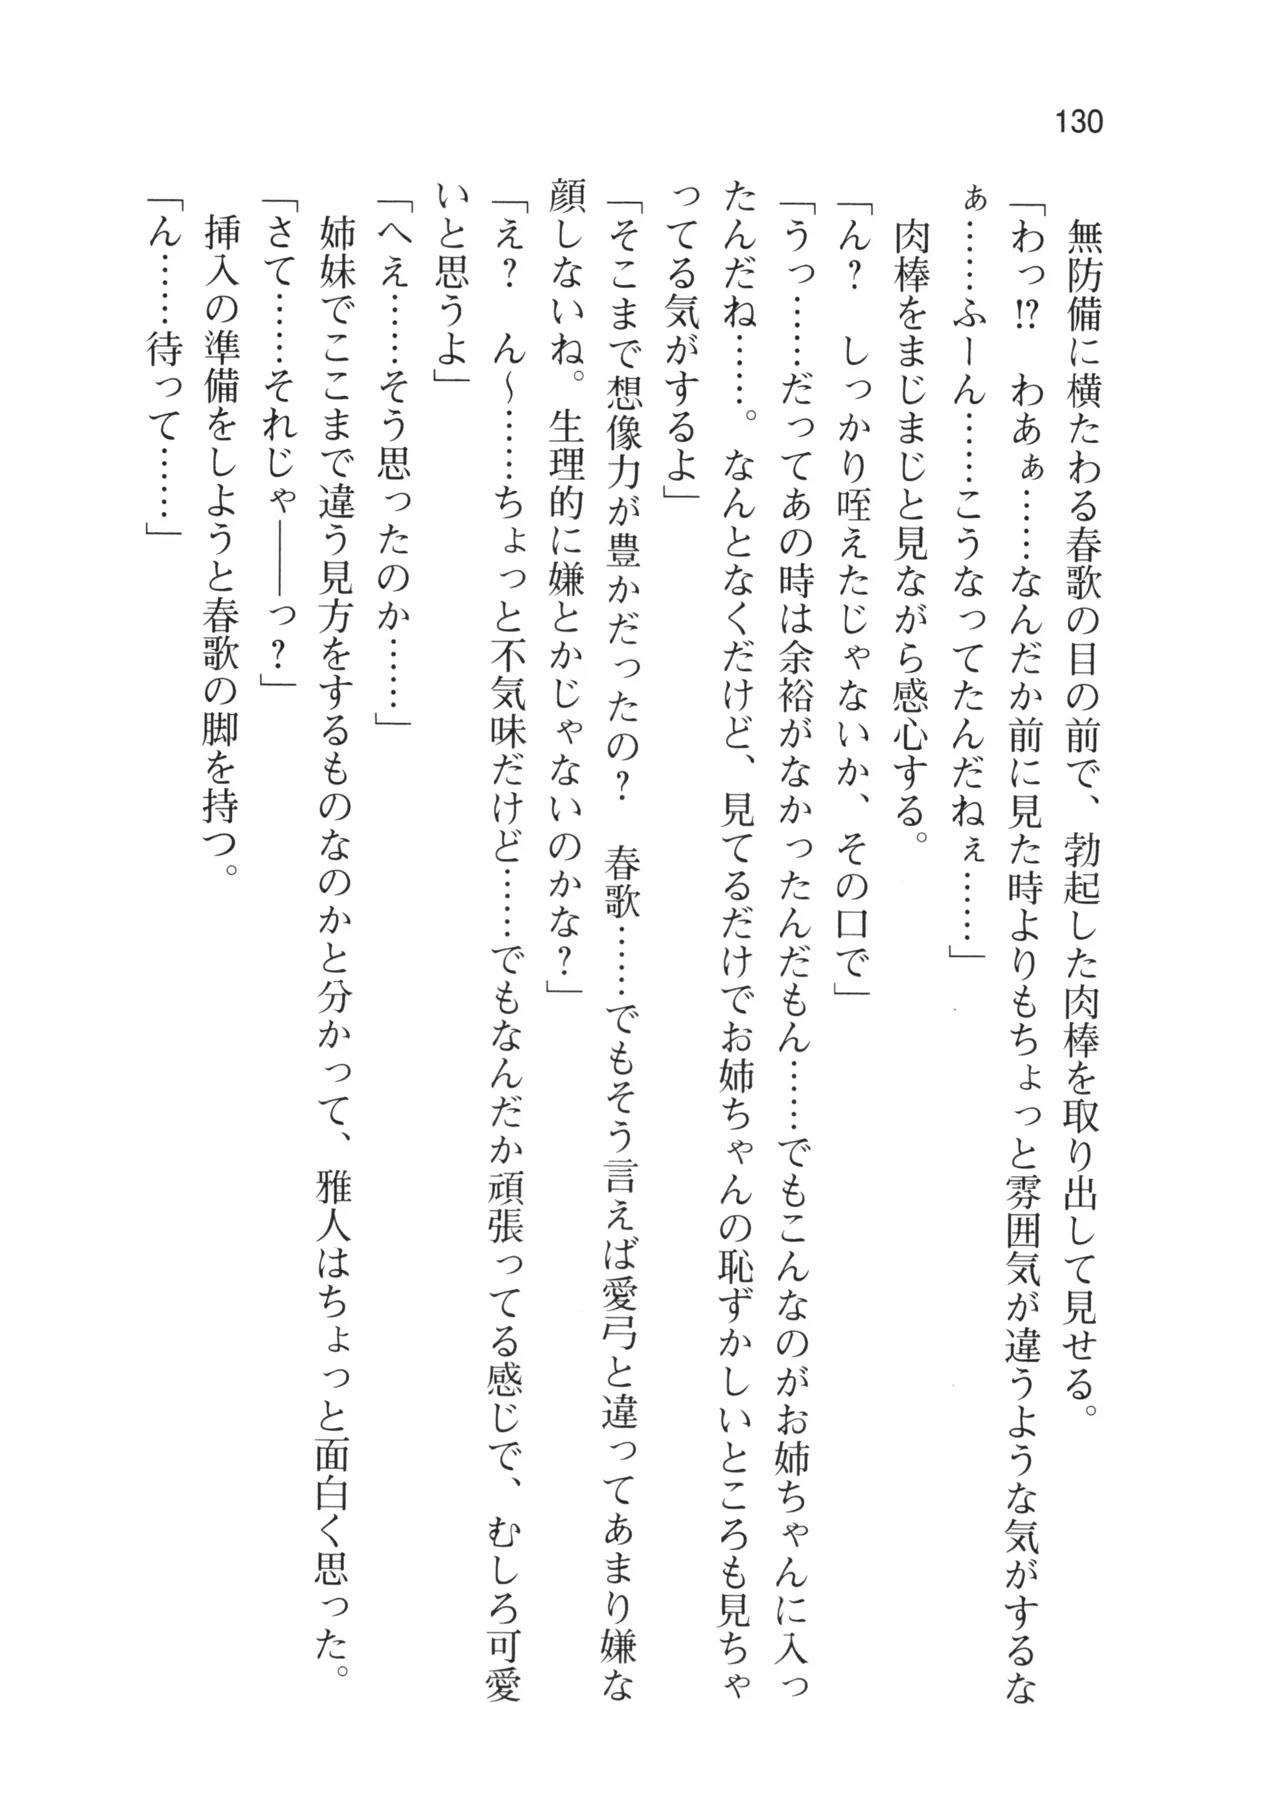 130
無防備に横たわる春歌の目の前で、勃起した肉棒を取り出して見せる。
「わっ!?　わあぁ……なんだか前に見た時よりもちょっと雰囲気が違うような気がするな
ぁ……ふーん……こうなってたんだねぇ……」
肉棒をまじまじと見ながら感心する。
「ん?　しっかり咥えたじゃないか、その口で」
「うっ……だってあの時は余裕がなかったんだもん……でもこんなのがお姉ちゃんに入っ
たんだね……。なんとなくだけど、見てるだけでお姉ちゃんの恥ずかしいところも見ちゃ
ってる気がするよ」
「そこまで想像力が豊かだったの?　春歌……でもそう言えば愛弓と違ってあまり嫌な
顔しないね。生理的に嫌とかじゃないのかな?」
「え?　ん〜……ちょっと不気味だけど……でもなんだか頑張ってる感じで、むしろ可愛
いと思うよ」
「へえ……そう思ったのか……」
姉妹でここまで違う見方をするものなのかと分かって、雅人はちょっと面白く思った。
「さて……それじゃ――っ?」
挿入の準備をしようと春歌の脚を持つ。
「ん……待って……」